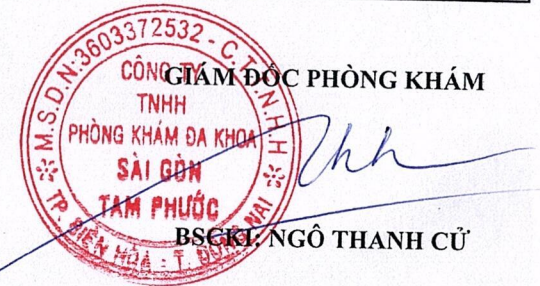 GIÁM ĐỐC PHÒNG KHÁM
M.S.D.N:3603372532 - C.T.T.N.H.H
CÔNG TY
TNHH
PHÒNG KHÁM ĐA KHOA
SÀI GÒN
TAM PHƯỚC
TP. BIÊN HÒA - T. ĐỒNG NAI
BSCKI: NGÔ THANH CỬ